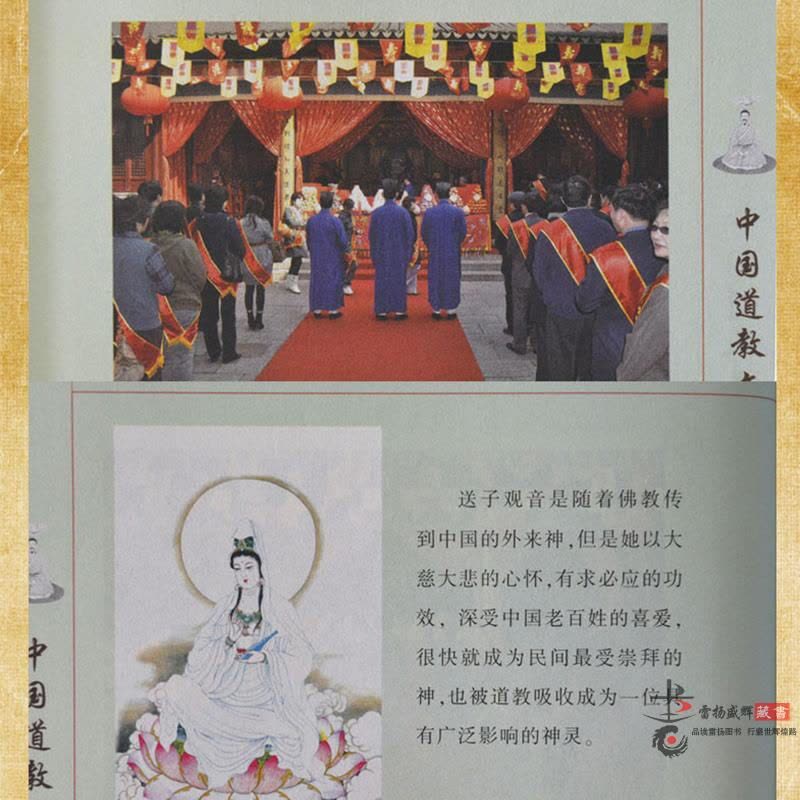 中国道教
送子观音是随着佛教传
到中国的外来神,但是她以大
慈大悲的心怀,有求必应的功
效,深受中国老百姓的喜爱,
很快就成为民间最受崇拜的
神,也被道教吸收成为一位
有广泛影响的神灵。
中国道教
雷扬盛辉藏書
品读雷扬图书 行盛世辉煌路